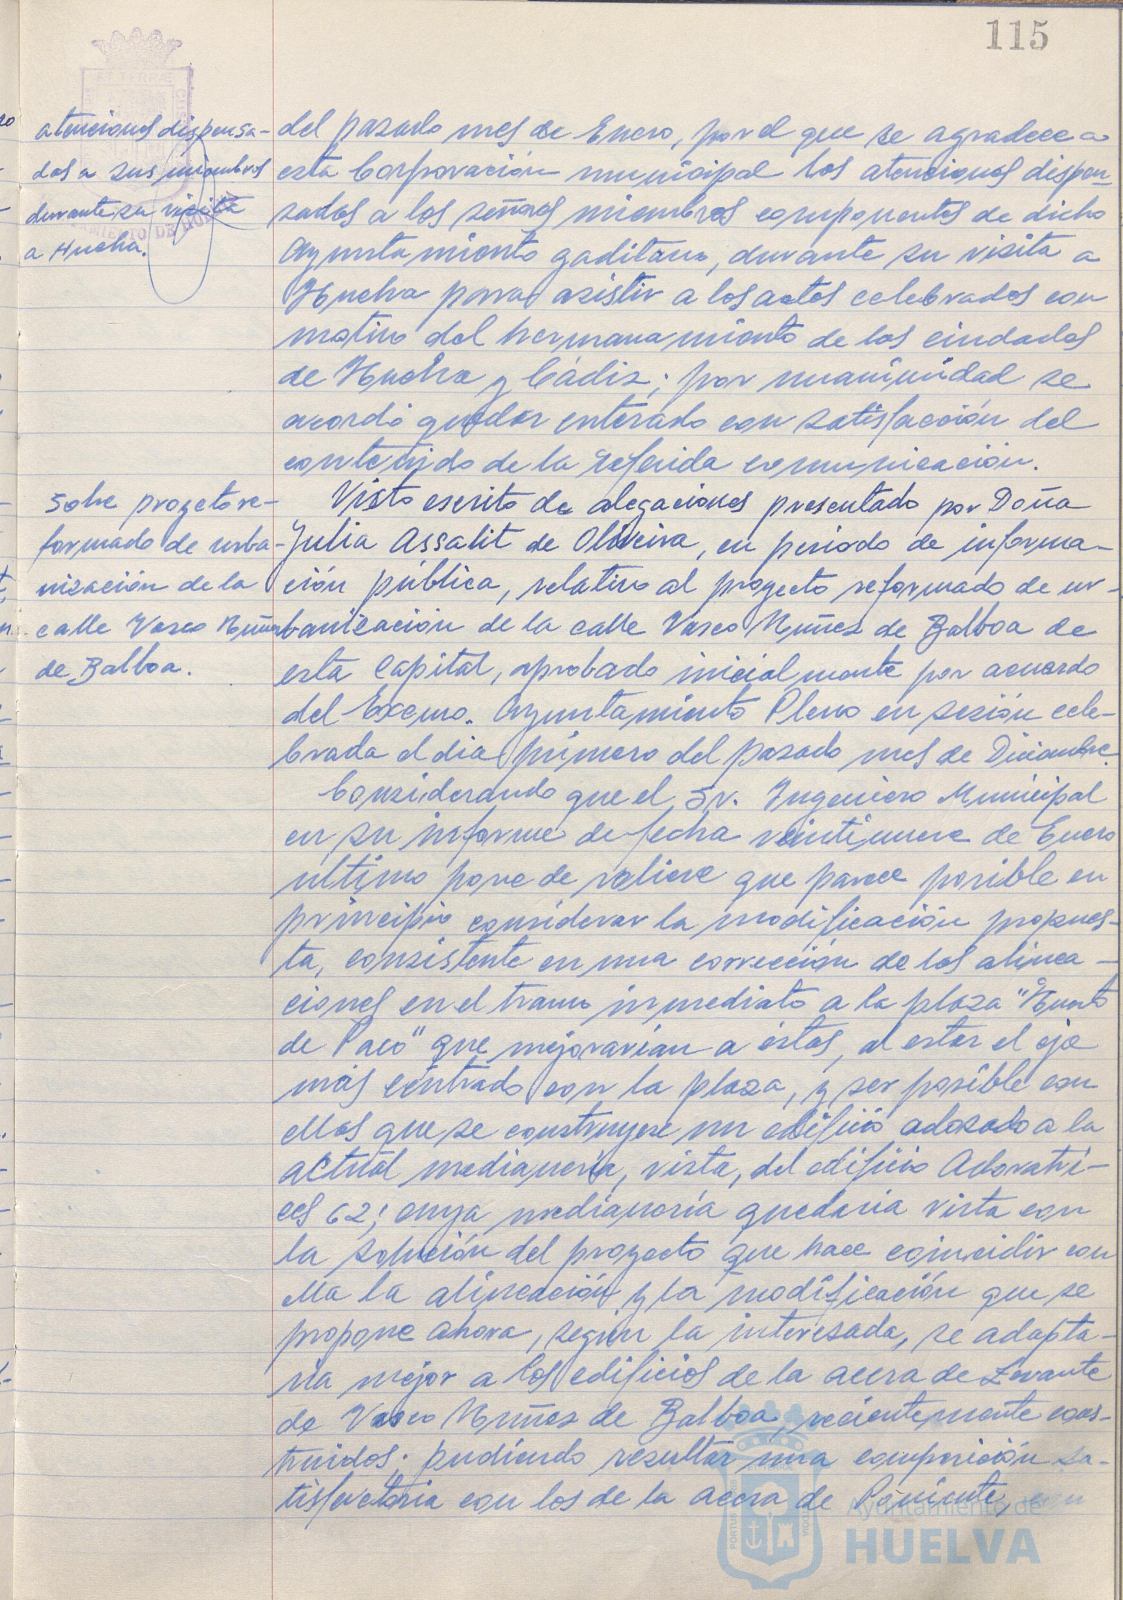 115
atenciones dispensa-
das a sus miembros
durante su visita
a Huelva.
del pasado mes de Enero, por el que se agradece a
esta Corporación municipal las atenciones dispen-
sadas a los señores miembros componentes de dicho
Ayuntamiento gaditano, durante su visita a
Huelva para asistir a los actos celebrados con
motivo del hermanamiento de las ciudades
de Huelva y Cádiz; por unanimidad se
acordó quedar enterado con satisfacción del
contenido de la referida comunicación.
Sobre proyecto re-
formado de urba-
nización de la
calle Vasco Núñez
de Balboa.
Visto escrito de alegaciones presentado por Doña
Julia Assalit de Oliveira, en periodo de informa-
ción pública, relativo al proyecto reformado de ur-
banización de la calle Vasco Núñez de Balboa de
esta Capital, aprobado inicialmente por acuerdo
del Excmo. Ayuntamiento Pleno en sesión cele-
brada el dia primero del pasado mes de Diciembre.
Considerando que el Sr. Ingeniero Municipal
en su informe de fecha veintinueve de Enero
ultimo pone de relieve que parece posible en
principio considerar la modificación propues-
ta, consistente en una corrección de las alinea-
ciones en el tramo inmediato a la plaza "Huerto
de Paco" que mejorarían a éstas, al estar el eje
más centrado con la plaza, y ser posible con
ellas que se construyese un edificio adosado a la
actual medianería, vista, del edificio Adoratri-
ces 62; cuya medianería quedaria vista con
la solución del proyecto que hace coincidir con
ella la alineación y la modificación que se
propone ahora, según la interesada, se adapta-
ria mejor a los edificios de la acera de Levante
de Vasco Núñez de Balboa, recientemente cons-
truidos; pudiendo resultar una composición sa-
tisfactoria con los de la acera de Poniente, con
Ayuntamiento de
HUELVA